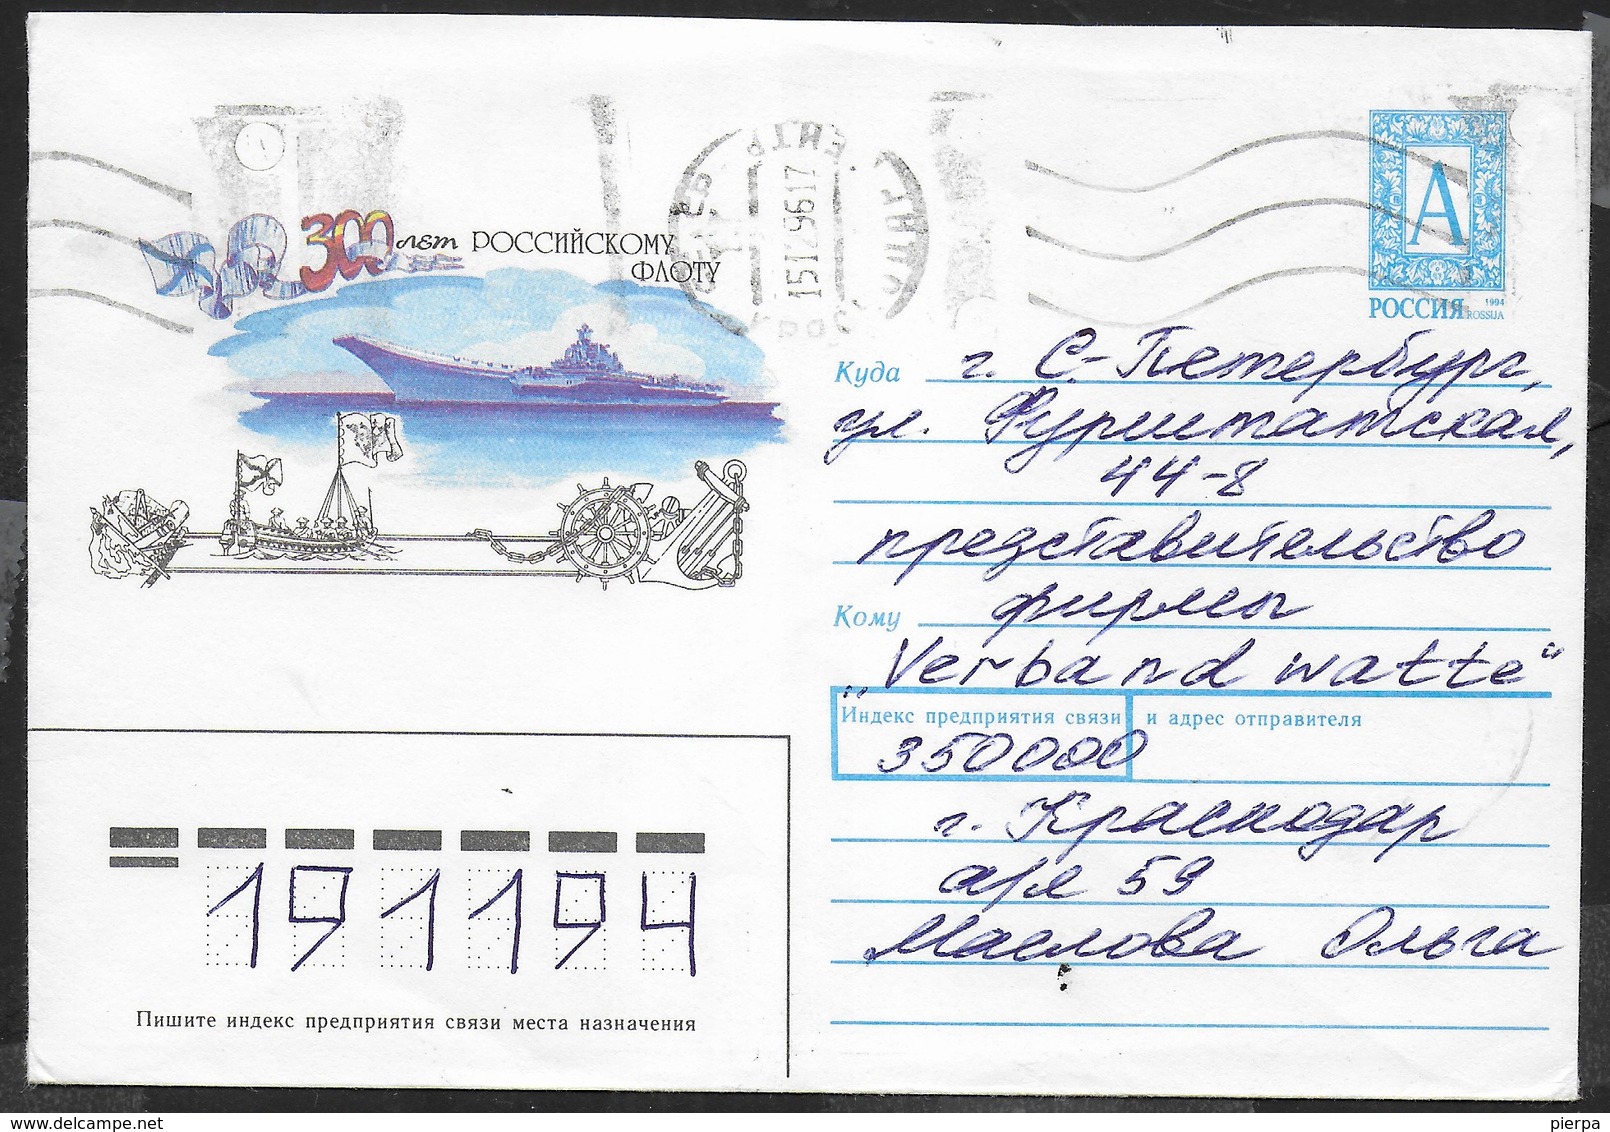 300 лет РОССИЙСКОМУ
ФЛОТУ
15 12 96 17
А
РОССИЯ 1994
ROSSIJA
Куда г. С.-Петербург,
ул. Фурштатская,
44-8
представительство
Кому фирмы
„Verband watte“
Индекс предприятия связи и адрес отправителя
350000
г. Краснодар
а/я 59
Маслова Ольга
191194
Пишите индекс предприятия связи места назначения
pierpa